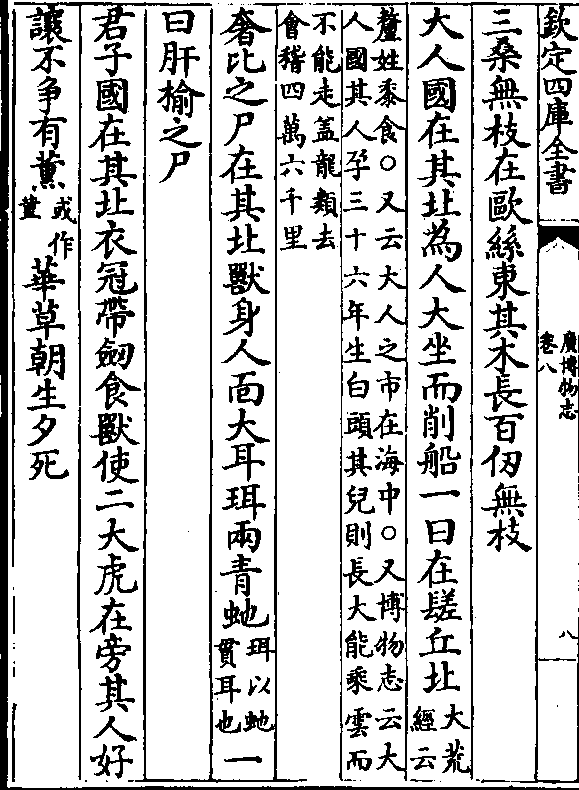 欽定四庫全書
廣博物志
卷八
八
三桑無枝在歐絲東其木長百仞無枝
大人國在其北為人大坐而削船一曰在𨲠丘北大荒經云
釐姓黍食○又云大人之市在海中○又博物志云大
人國其人孕三十六年生白頭其兒則長大能乘雲而
不能走蓋龍類去
會稽四萬六千里
奢比之尸在其北獸身人面大耳珥兩青虵珥以虵貫耳也一
曰肝揄之尸
君子國在其北衣冠帶劒食獸使二大虎在旁其人好
讓不争有薰或作菫華草朝生夕死